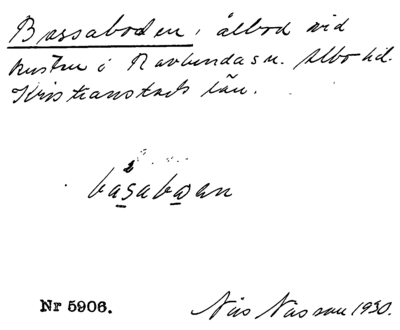 Bossaboden, ålbod vid
kusten i Ravlunda sn. Albo hd.
Kristianstads län.
Nr 5906.
Nils Nilsson 1930.